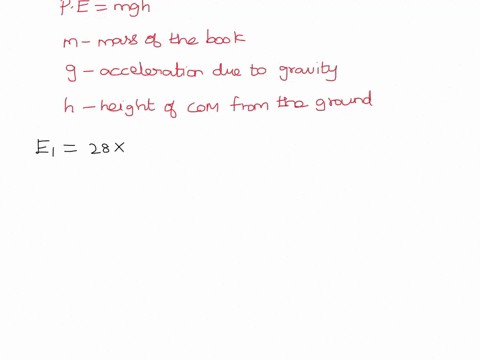 P.E = mgh
m - mass of the book
g - acceleration due to gravity
h - height of COM from the ground
E₁ = 28 ×